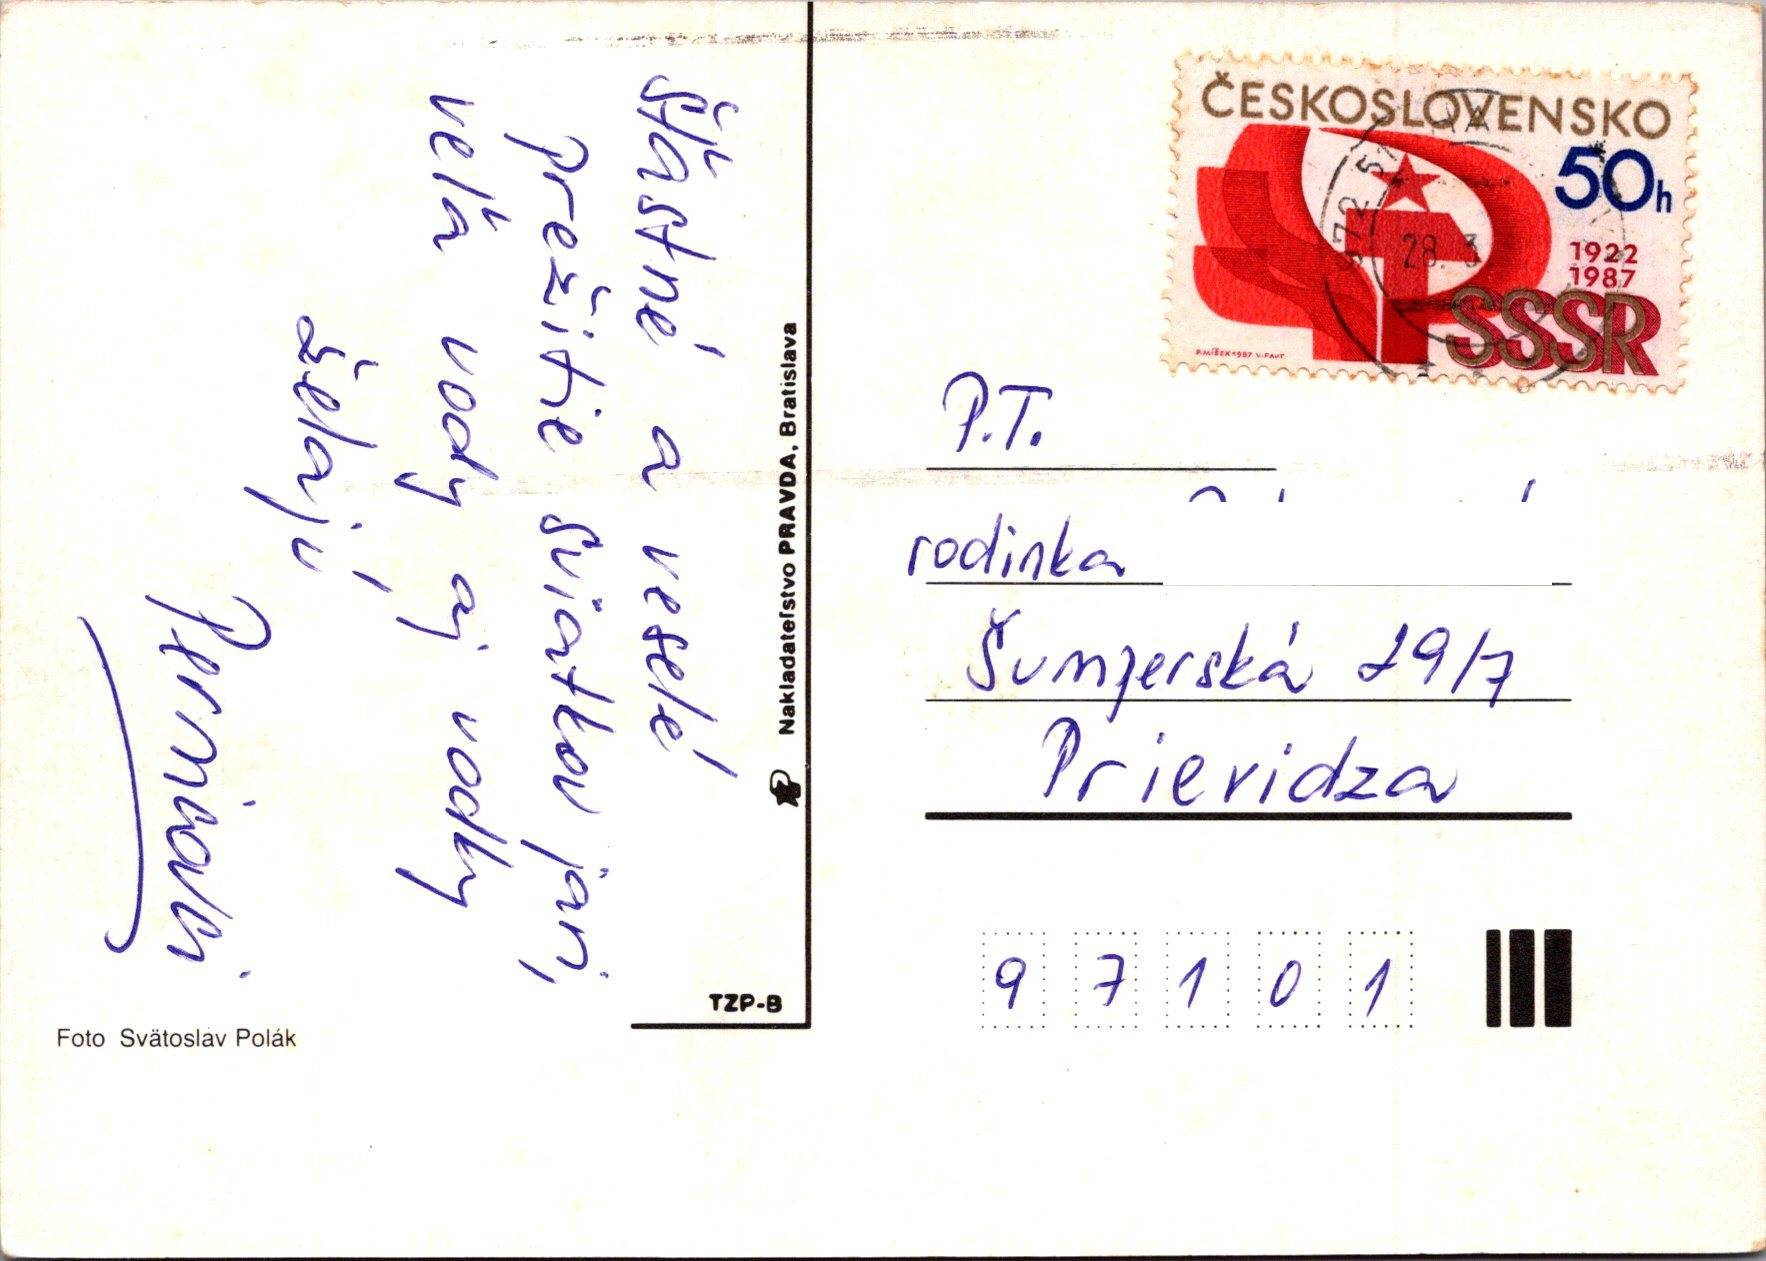 Šťastné a veselé
prežitie sviatkov jari,
veľa vody aj vodky
želajú
Nakladateľstvo PRAVDA, Bratislava
TZP-B
Foto Svätoslav Polák
ČESKOSLOVENSKO
50h
1922
1987
SSSR
P.MÍŠEK 1987 V.FAJT
972 51
28. 3
P.T.
rodinka
Šumperská 29/7
Prievidza
97101